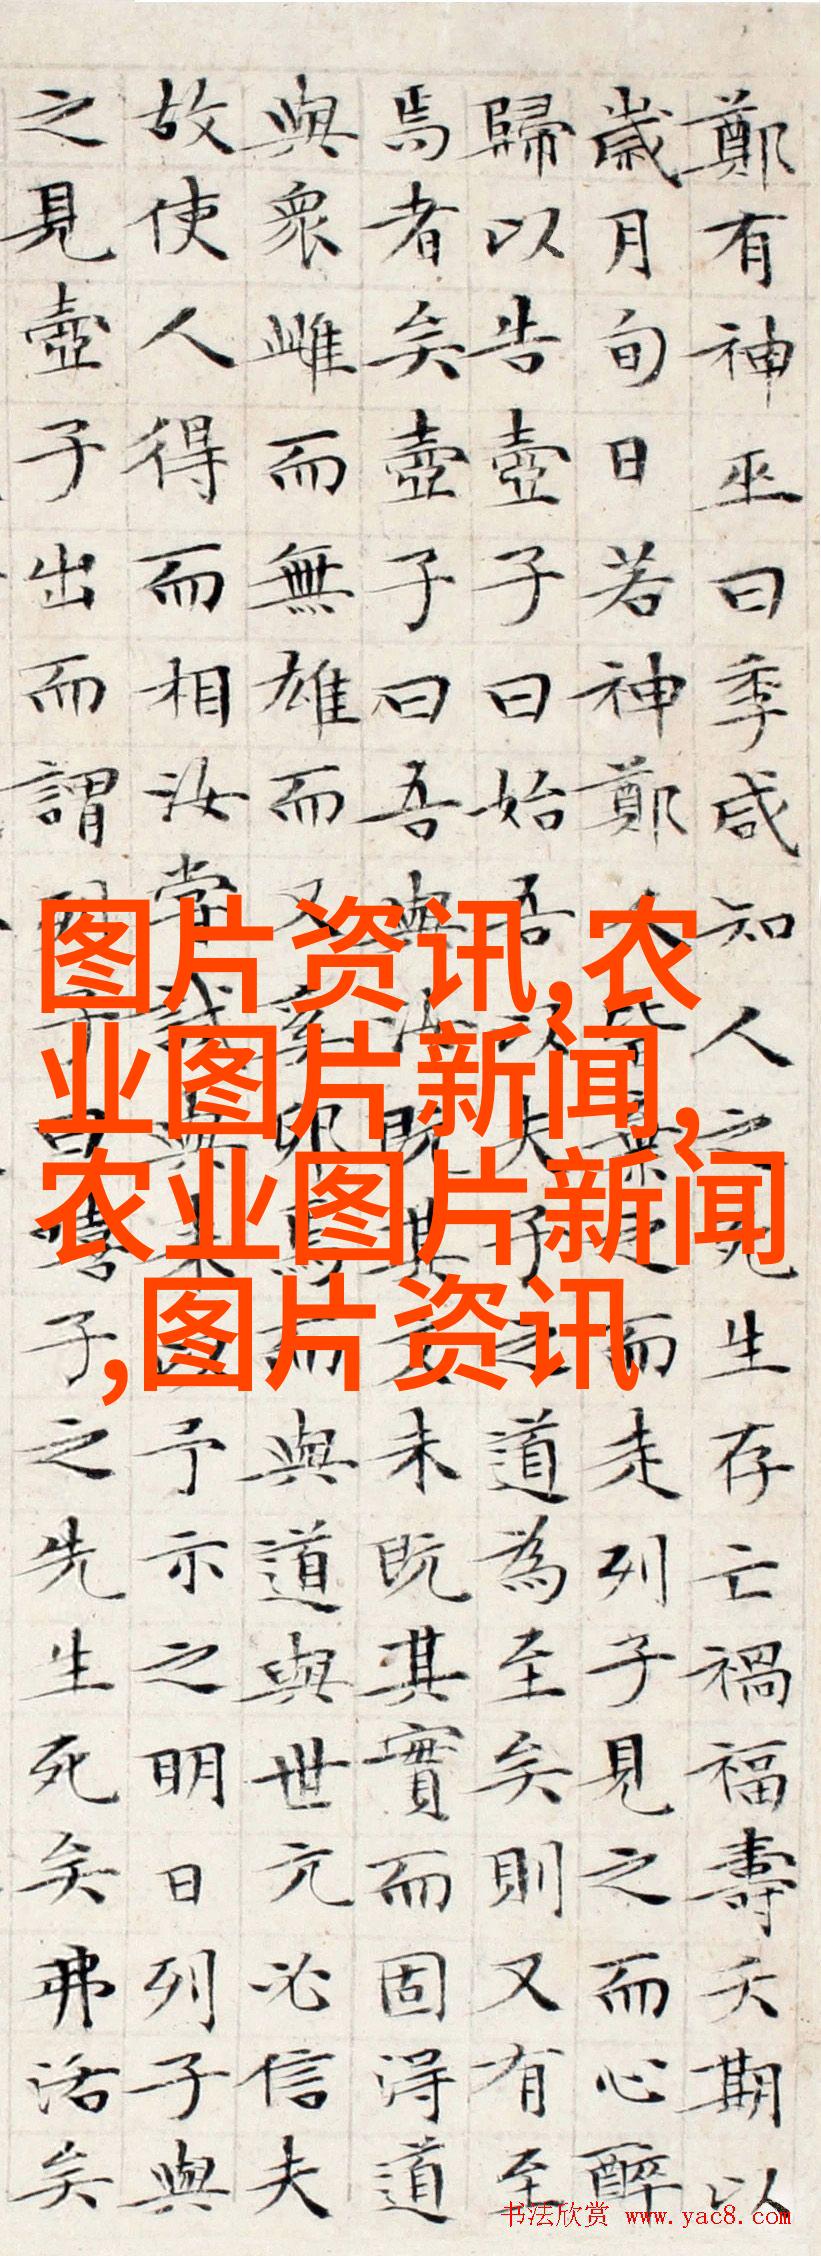 鄭有神巫曰季咸知人之死生存亡禍福壽夭期以
歲月旬日若神鄭人皆棄之而走列子見之而心醉
歸以告壺子曰始吾以夫子之道為至矣則又有至
焉者矣壺子曰吾與汝既其文未既其實而固得道
與衆雌而無雄而又奚卵焉而與道與世亢必信夫
故使人得而相汝嘗試與來以予示之明日列子與
之見壺子出而謂列子曰嘻子之先生死矣弗活矣
图片资讯,农
业图片新闻,
农业图片新闻
,图片资讯
书法欣赏 www.yac8.com